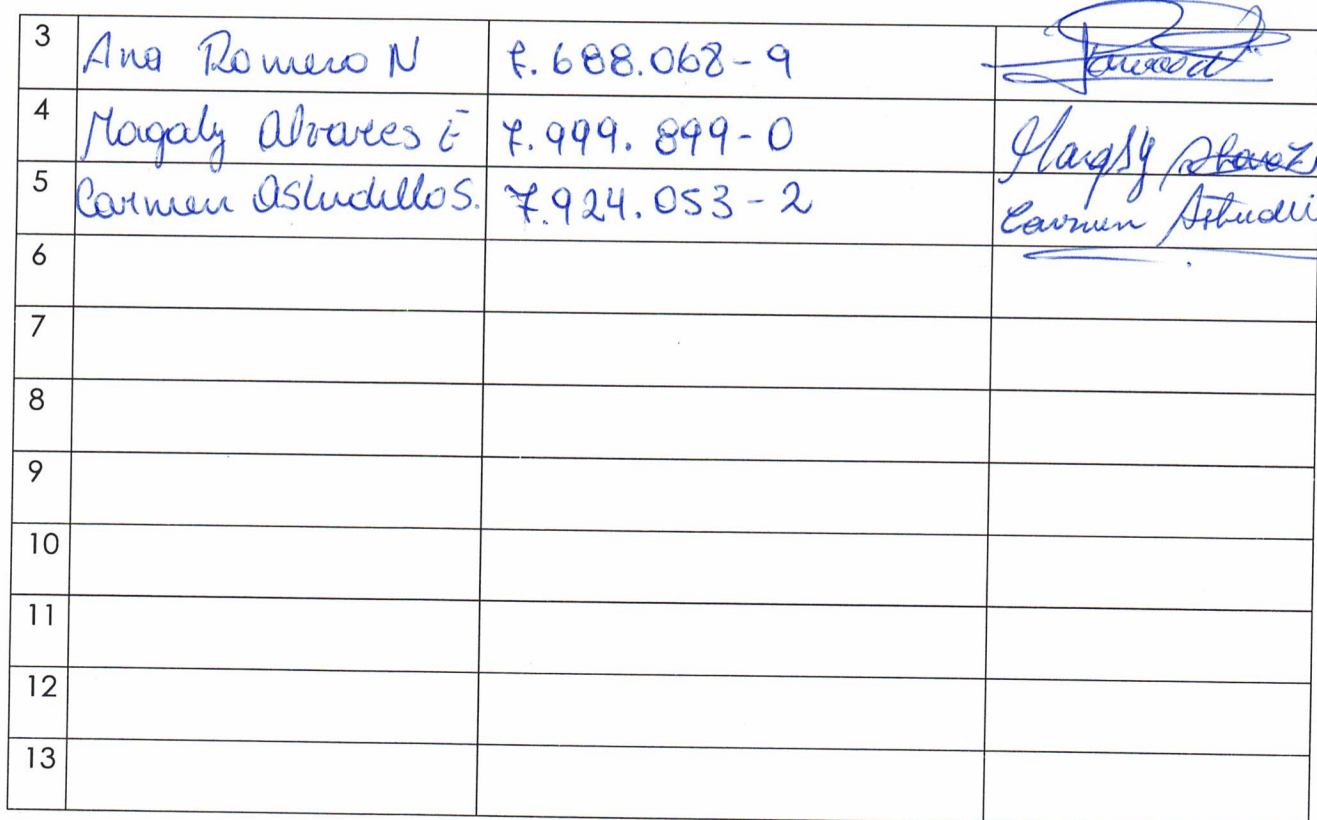 3 Ana Romero N 7.688.068-9
4 Magaly Alvares E 7.999.899-0 Magaly
5 Carmen Astudillo S. 7.924.053-2 Carmen Astudi
6
7
8
9
10
11
12
13